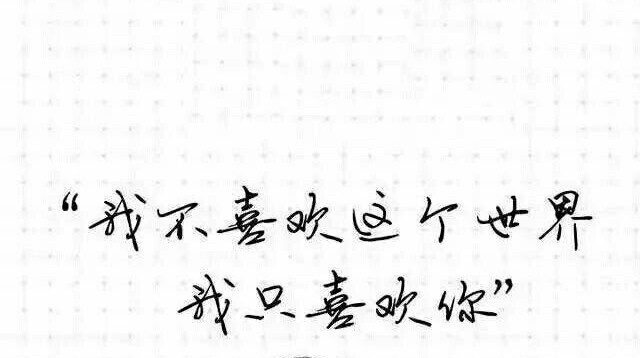 “我不喜欢这个世界
我只喜欢你”